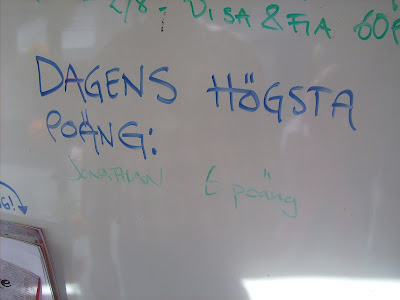 2/8 - DISA & FIA 60P
DAGENS HÖGSTA
POÄNG:
JONATHAN 6 poäng